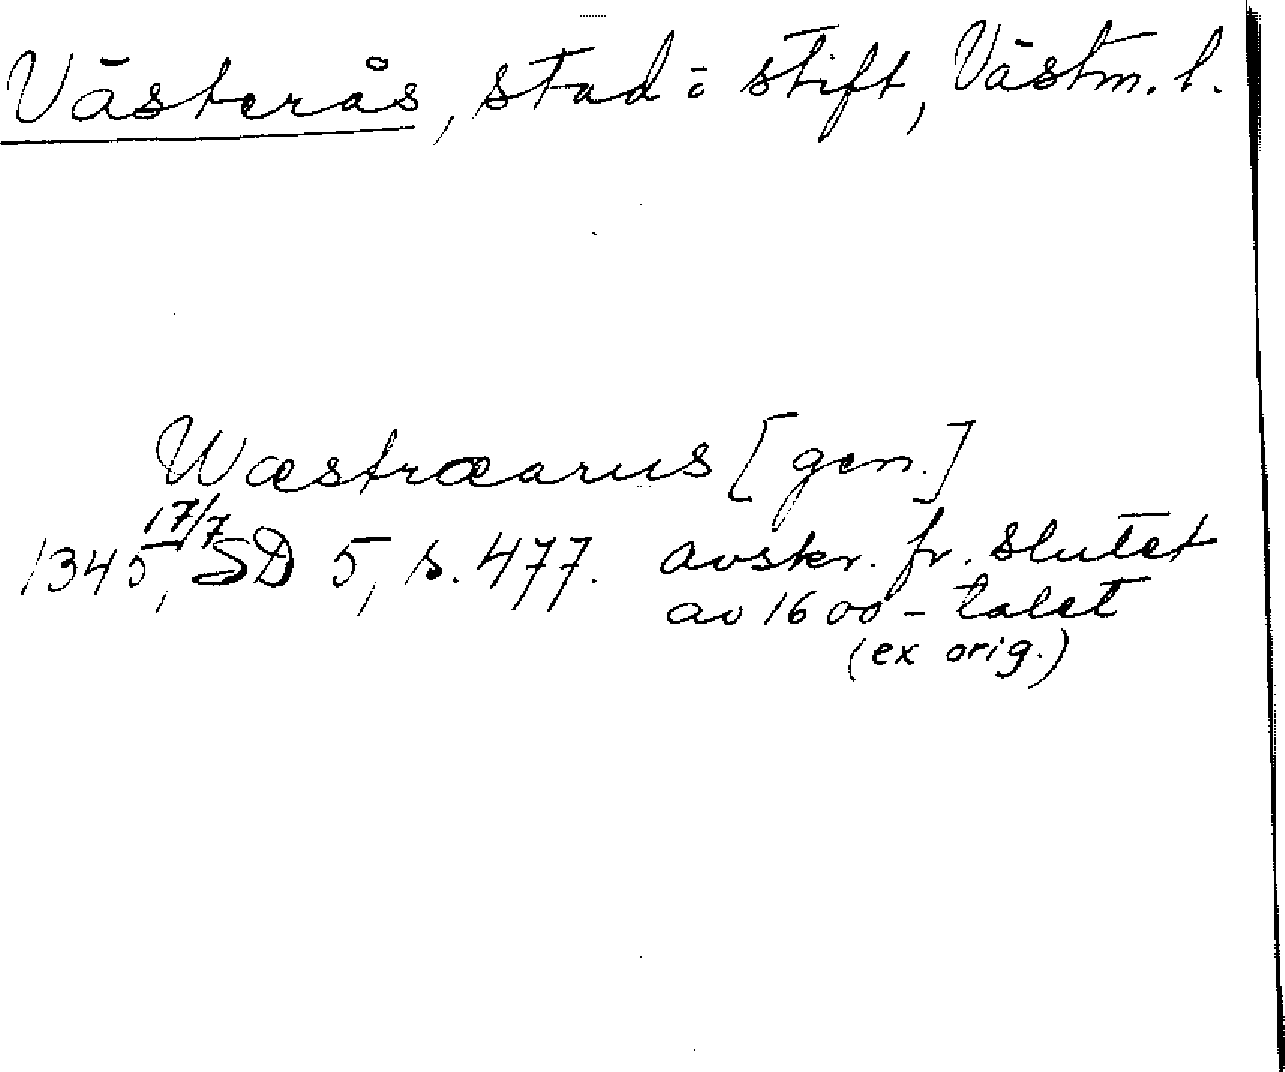 Västerås, stad o. stift, Västm. l.
Wæstræarus [gen.]
1345 17/7, SD 5, s. 477. avskr. fr. slutet
av 1600-talet
(ex orig.)